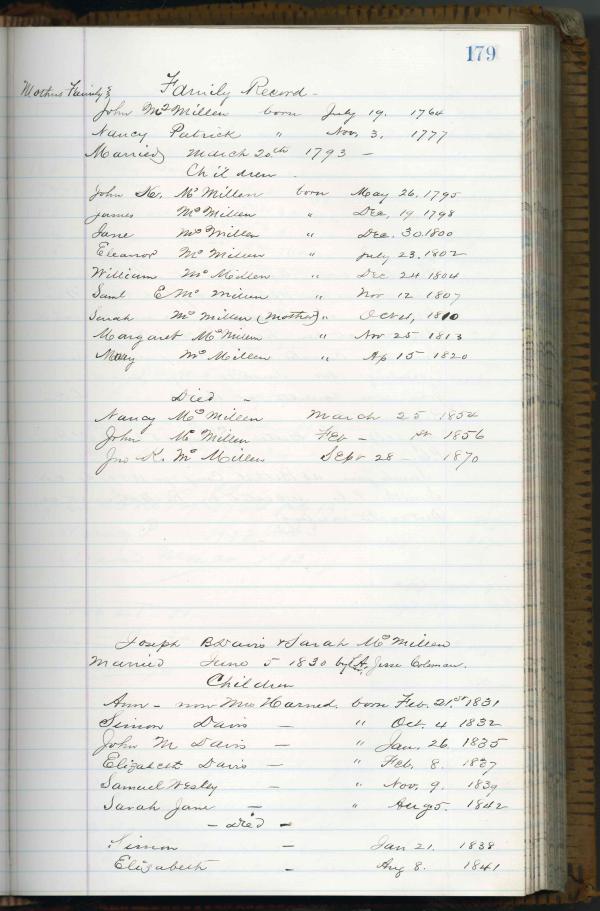 179
Mothers Family & Family Record -
John McMillen born July 19. 1764
Nancy Patrick " Nov. 3. 1777
Married March 20th 1793 -
Children
John K. McMillen born May 26. 1795
James McMillen " Dec. 19 1798
Jane McMillen " Dec. 30. 1800
Eleanor McMillen " July 23. 1802
William McMillen " Dec 24 1804
Saml E McMillen " Nov 12 1807
Sarah McMillen (Mother) " Oct 4, 1810
Margaret McMillen " Nov 25 1813
Mary McMillen " Ap 15 1820
Died -
Nancy McMillen March 25 1854
John McMillen Feb - 1856
Jno K. McMillen Sept 28 - 1870
Joseph B Davis & Sarah McMillen
Married June 5 1830 by Jesse Coleman.
Children
Ann - now Mrs Harned. born Feb. 21st 1831
Simon Davis - " Oct. 4 1832
John M Davis - " Jan. 26. 1835
Elizabeth Davis - " Feb. 8. 1837
Samuel Wesley - " Nov. 9. 1839
Sarah Jane - " Aug 5. 1842
- Died -
Simon - Jan 21. 1838
Elizabeth - Aug 8. 1841